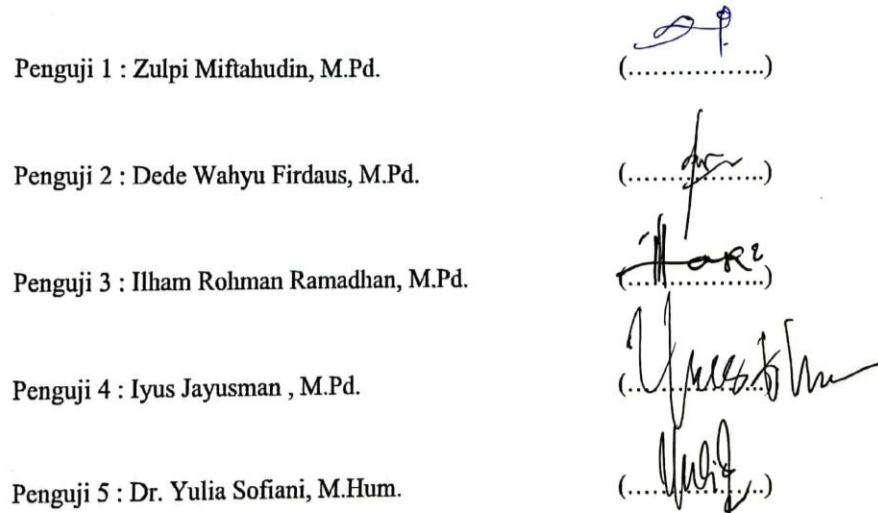 Penguji 1 : Zulpi Miftahudin, M.Pd. (..................)
Penguji 2 : Dede Wahyu Firdaus, M.Pd. (..................)
Penguji 3 : Ilham Rohman Ramadhan, M.Pd. (..................)
Penguji 4 : Iyus Jayusman , M.Pd. (..................)
Penguji 5 : Dr. Yulia Sofiani, M.Hum. (..................)